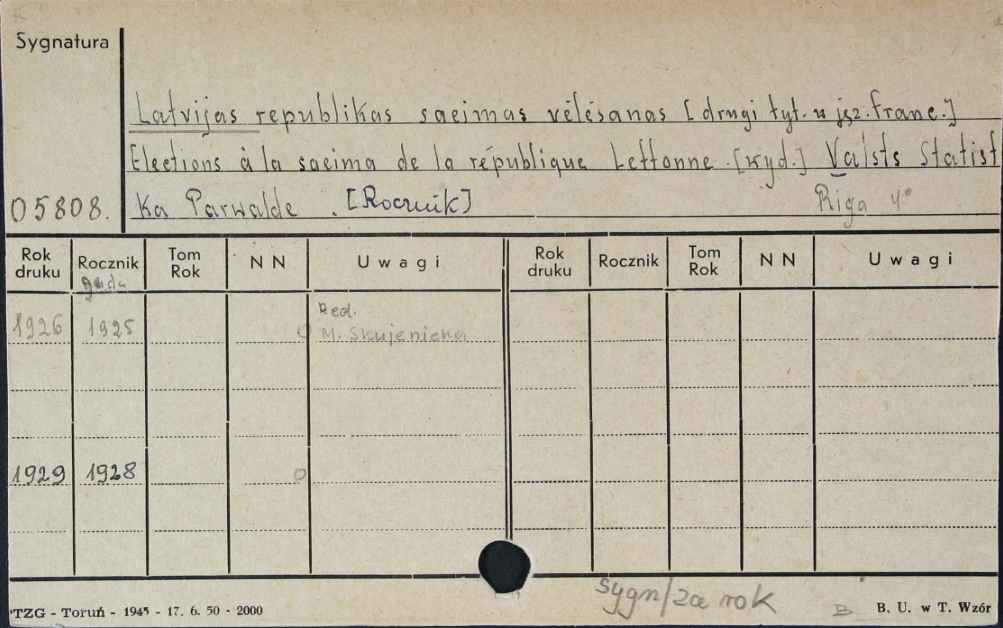 Sygnatura
Latvijas republikas saeimas vēlēšanas [drugi tyt. w jęz. franc.]
Elections à la saeima de la république Lettonne. [wyd.] Valsts Statisti
05808. ka Parwalde. [Rocznik] Riga 4°
Rok druku Rocznik Tom Rok N N Uwagi Rok druku Rocznik Tom Rok N N Uwagi
gada
1926 1925 0 Red. M. Skujenieka
1929 1928 0
sygn/za rok
TZG - Toruń - 1945 - 17. 6. 50 - 2000 B B. U. w T. Wzór